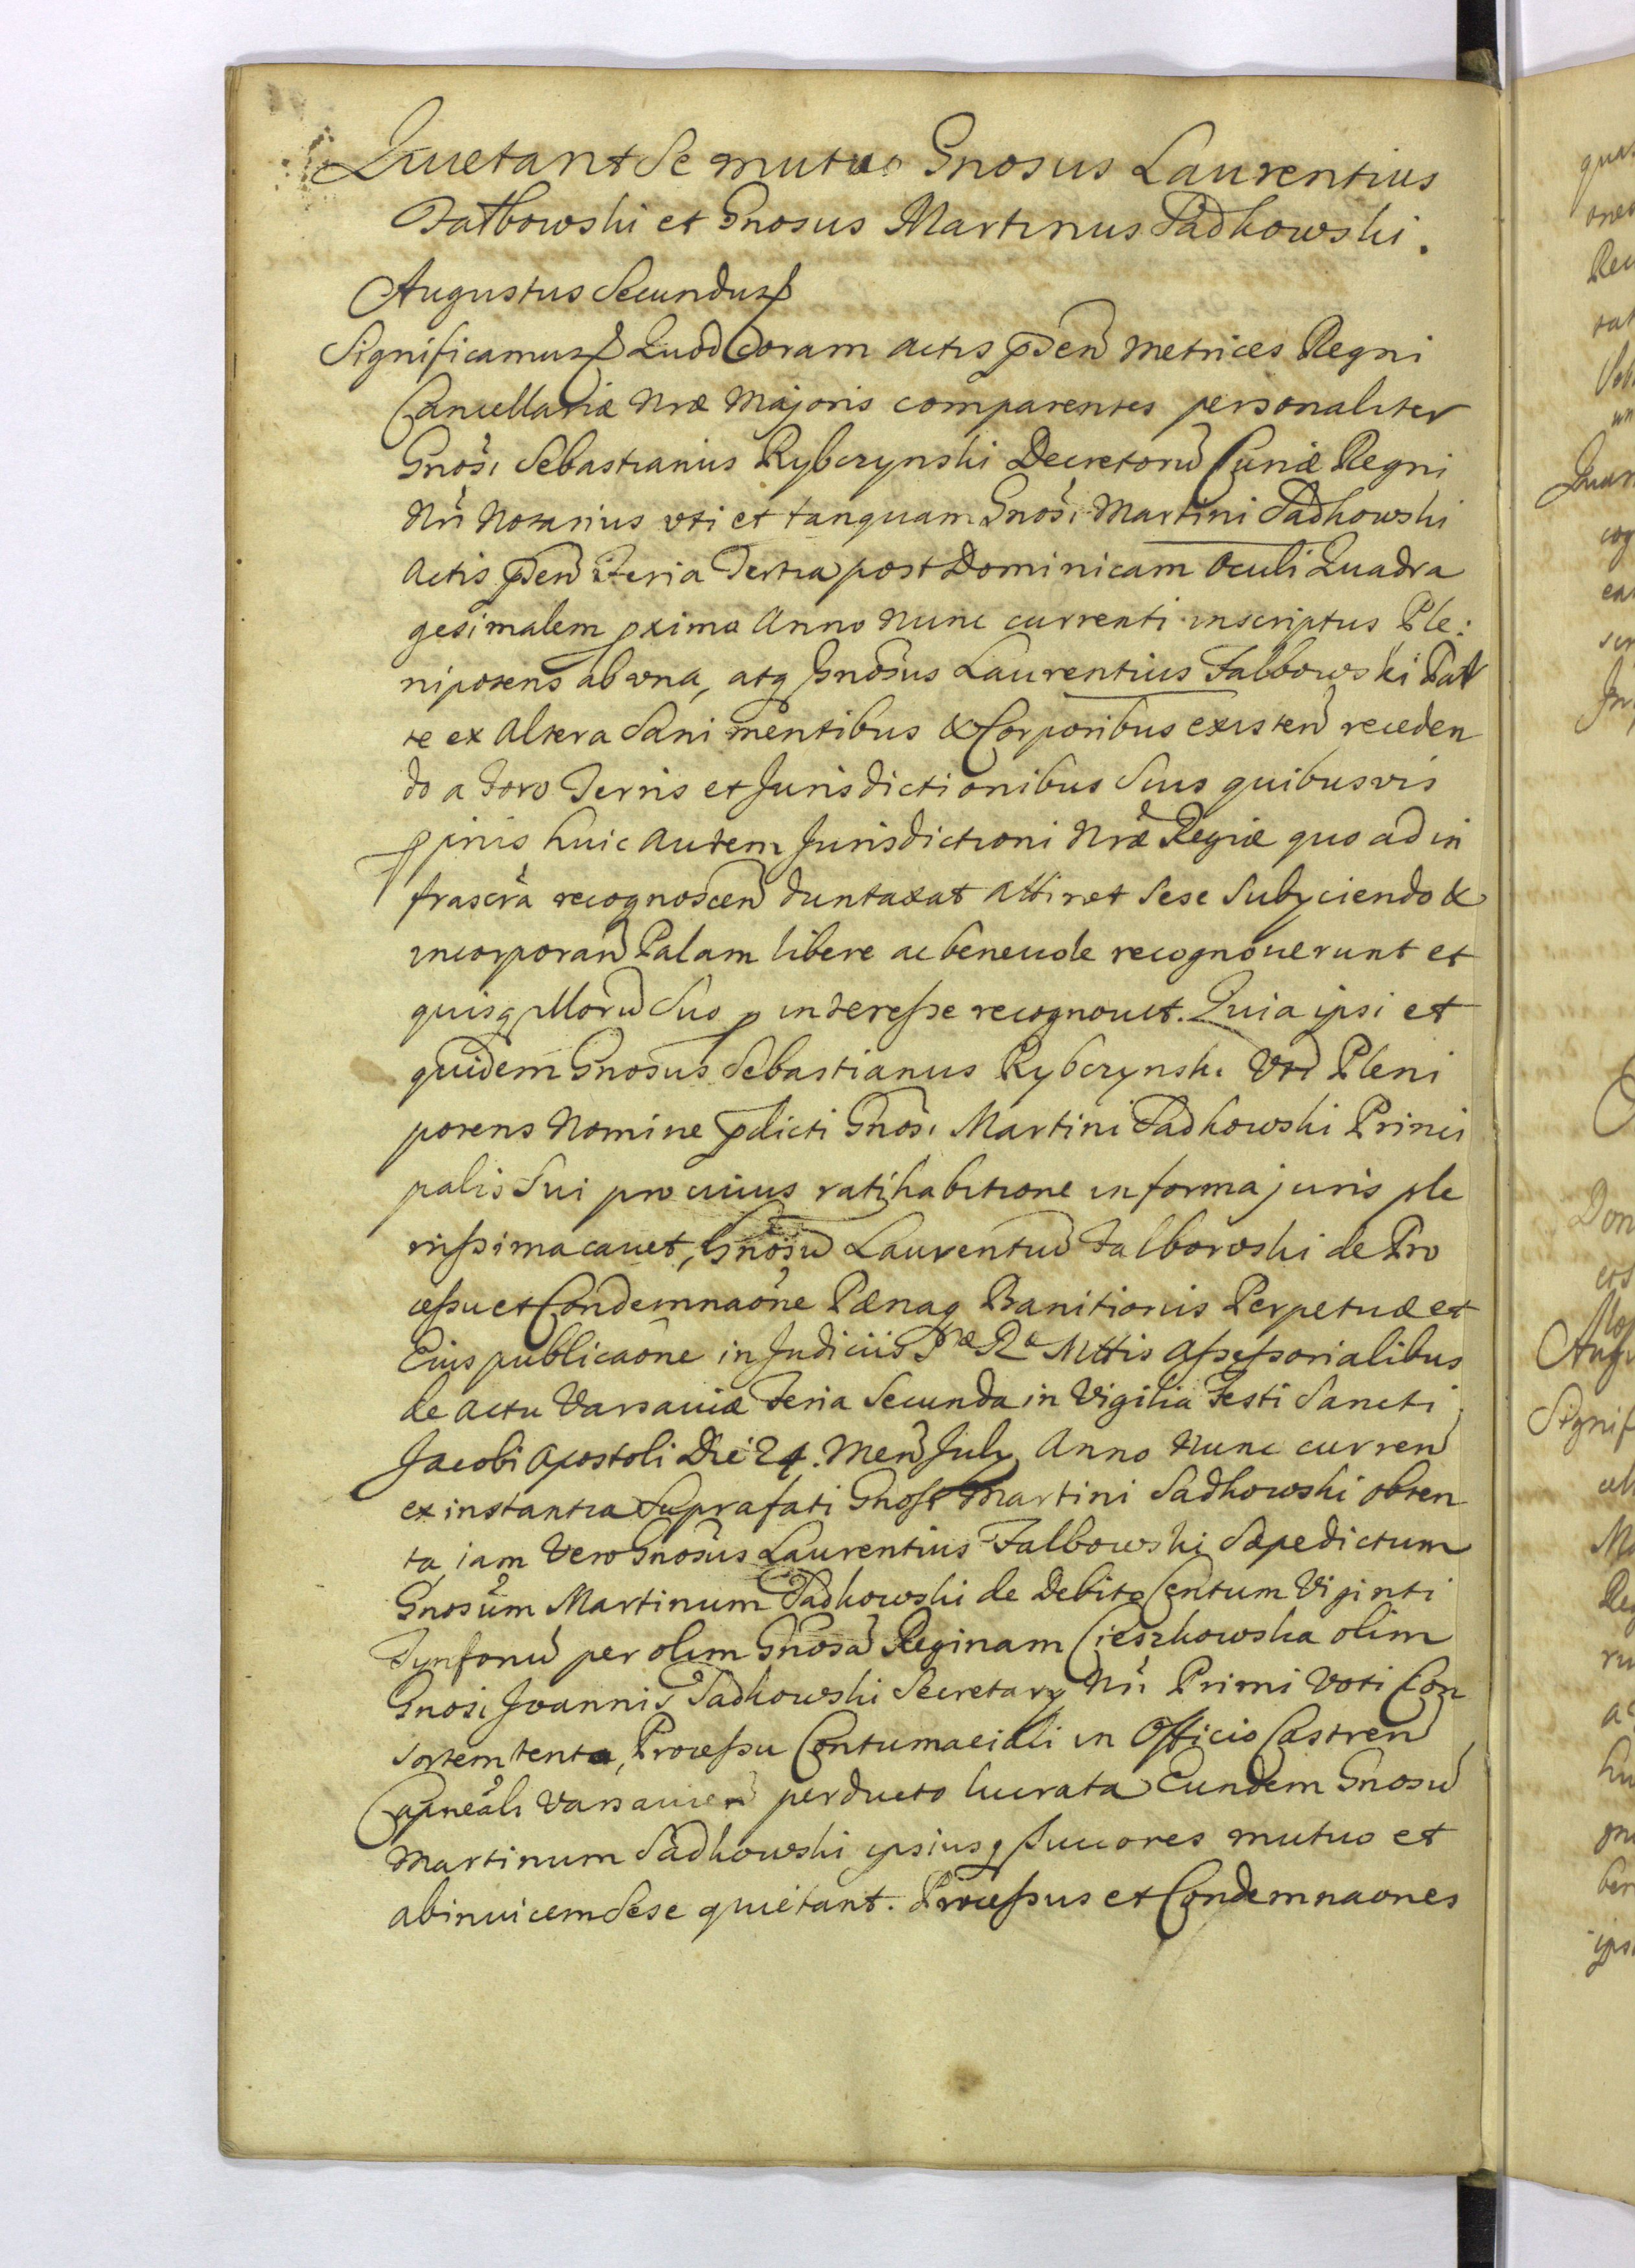 Quietant Se mutuo Gnosus Laurentius
Falbowski et Gnosus Martinus Sadkowski.
Augustus Secundus
Significamus Quod Coram actis pñten Metrices Regni
Cancellariæ Nræ Majoris comparentes personaliter
Gnosi Sebastianus Rybczynski Decretorũ Curiæ Regni
Nri Notarius uti et tanquam Gnosi Martini Sadkowski
Actis pñten Feria Tertia post Dominicam Oculi Quadra
gesimalem pxima Anno Nunc currenti inscriptus Ple:
nipotens ab una, atq Gnosus Laurentius Falbowski Par
te ex Altera Sani mentibus & Corporibus existen receden
do a Foro Terris et Jurisdictionibus Suis quibusvis
ppriis huic Autem Jurisdictioni Nræ Regiæ quo ad in
frascra recognoscen duntaxat Attinet Sese Subyciendo &
incorporan Palam libere ac benevole recognoverunt et
quisq Illorũ Suo p interesse recognovit. Quia ipsi et
quidem Gnosus Sebastianus Rybczynski Uti Pleni
potens Nomine pdicti Gnosi Martini Sadkowski Princi
palis Sui pro cuius ratihabitione in forma juris ple
nissima cavet, Gnosũ Laurentiũ Falbowski de Pro
cessu et Condemnaone Pænaq Banitionis Perpetuæ et
Eius publicaone in Judiciis Sræ Ræ Mttis Assessorialibus
de actu Varsaviæ Feria Secunda in Vigilia Festi Sancti
Jacobi Apostoli Die 24. Men July Anno Nunc curren
ex instantia Suprafati Gnosi Martini Sadkowski obten
ta, iam Vero Gnosus Laurentius Falbowski Sæpedictum
Gnosum Martinum Sadkowski de Debito Centum Viginti
Tynfonũ per olim Gnosã Reginam Cieszkowska olim
Gnosi Joannis Sadkowski Secretary Nri Primi Voti Con
sortem tenta, Processu Contumaciali in Officio Castren
Capneali Varsavien perducto lucrata Eundem Gnosũ
Martinum Sadkowski ipsiusq Succores mutuo et
abinvicem Sese quietant. Processus et Condemnaones